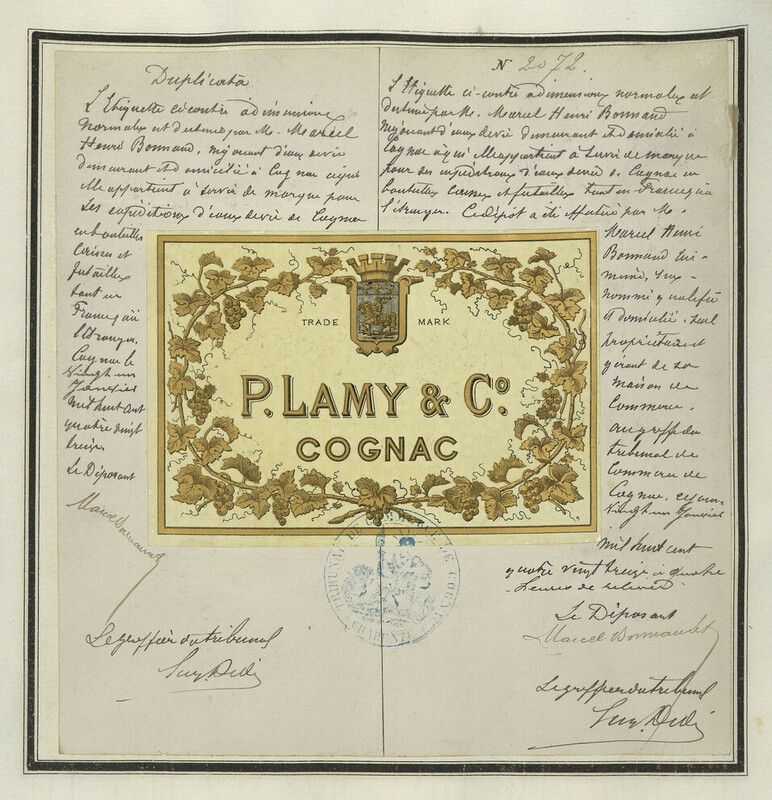 Duplicata
L'Etiquette ci-contre de dimensions
normales est destinée par M. Marcel
Henri Bonnaud, négociant d'eaux de vie
demeurant et domicilié à Cognac
lui appartient à servir de marque pour
ses expéditions d'eaux de vie de Cognac
en bouteilles
caisses et
futailles
tant en
France qu'à
l'étranger.
Cognac le
vingt un
Janvier
mil huit cent
quatre vingt
treize.
Le Déposant
Marcel Bonnaud
Le greffier du tribunal
N° 2072.
L'Etiquette ci-contre de dimensions normales est
destinée par M. Marcel Henri Bonnaud
négociant d'eaux de vie demeurant et domicilié à
Cognac à qui elle appartient à servir de marque
pour ses expéditions d'eaux de vie de Cognac en
bouteilles caisses et futailles tant en France qu'à
l'étranger. Ce dépôt a été effectué par M.
Marcel Henri
Bonnaud lui-
même, sus-
nommé, qualifié
et domicilié, seul
propriétaire et
gérant de sa
maison de
Commerce,
au greffe du
tribunal de
Commerce de
Cognac, ce jour
vingt un Janvier
mil huit cent
quatre vingt treize à quatre
heures de relevée.
Le Déposant
Marcel Bonnaud
Le greffier du tribunal
TRADE MARK
P. LAMY & Cº
COGNAC
TRIBUNAL DE COMMERCE DE COGNAC
CHARENTE